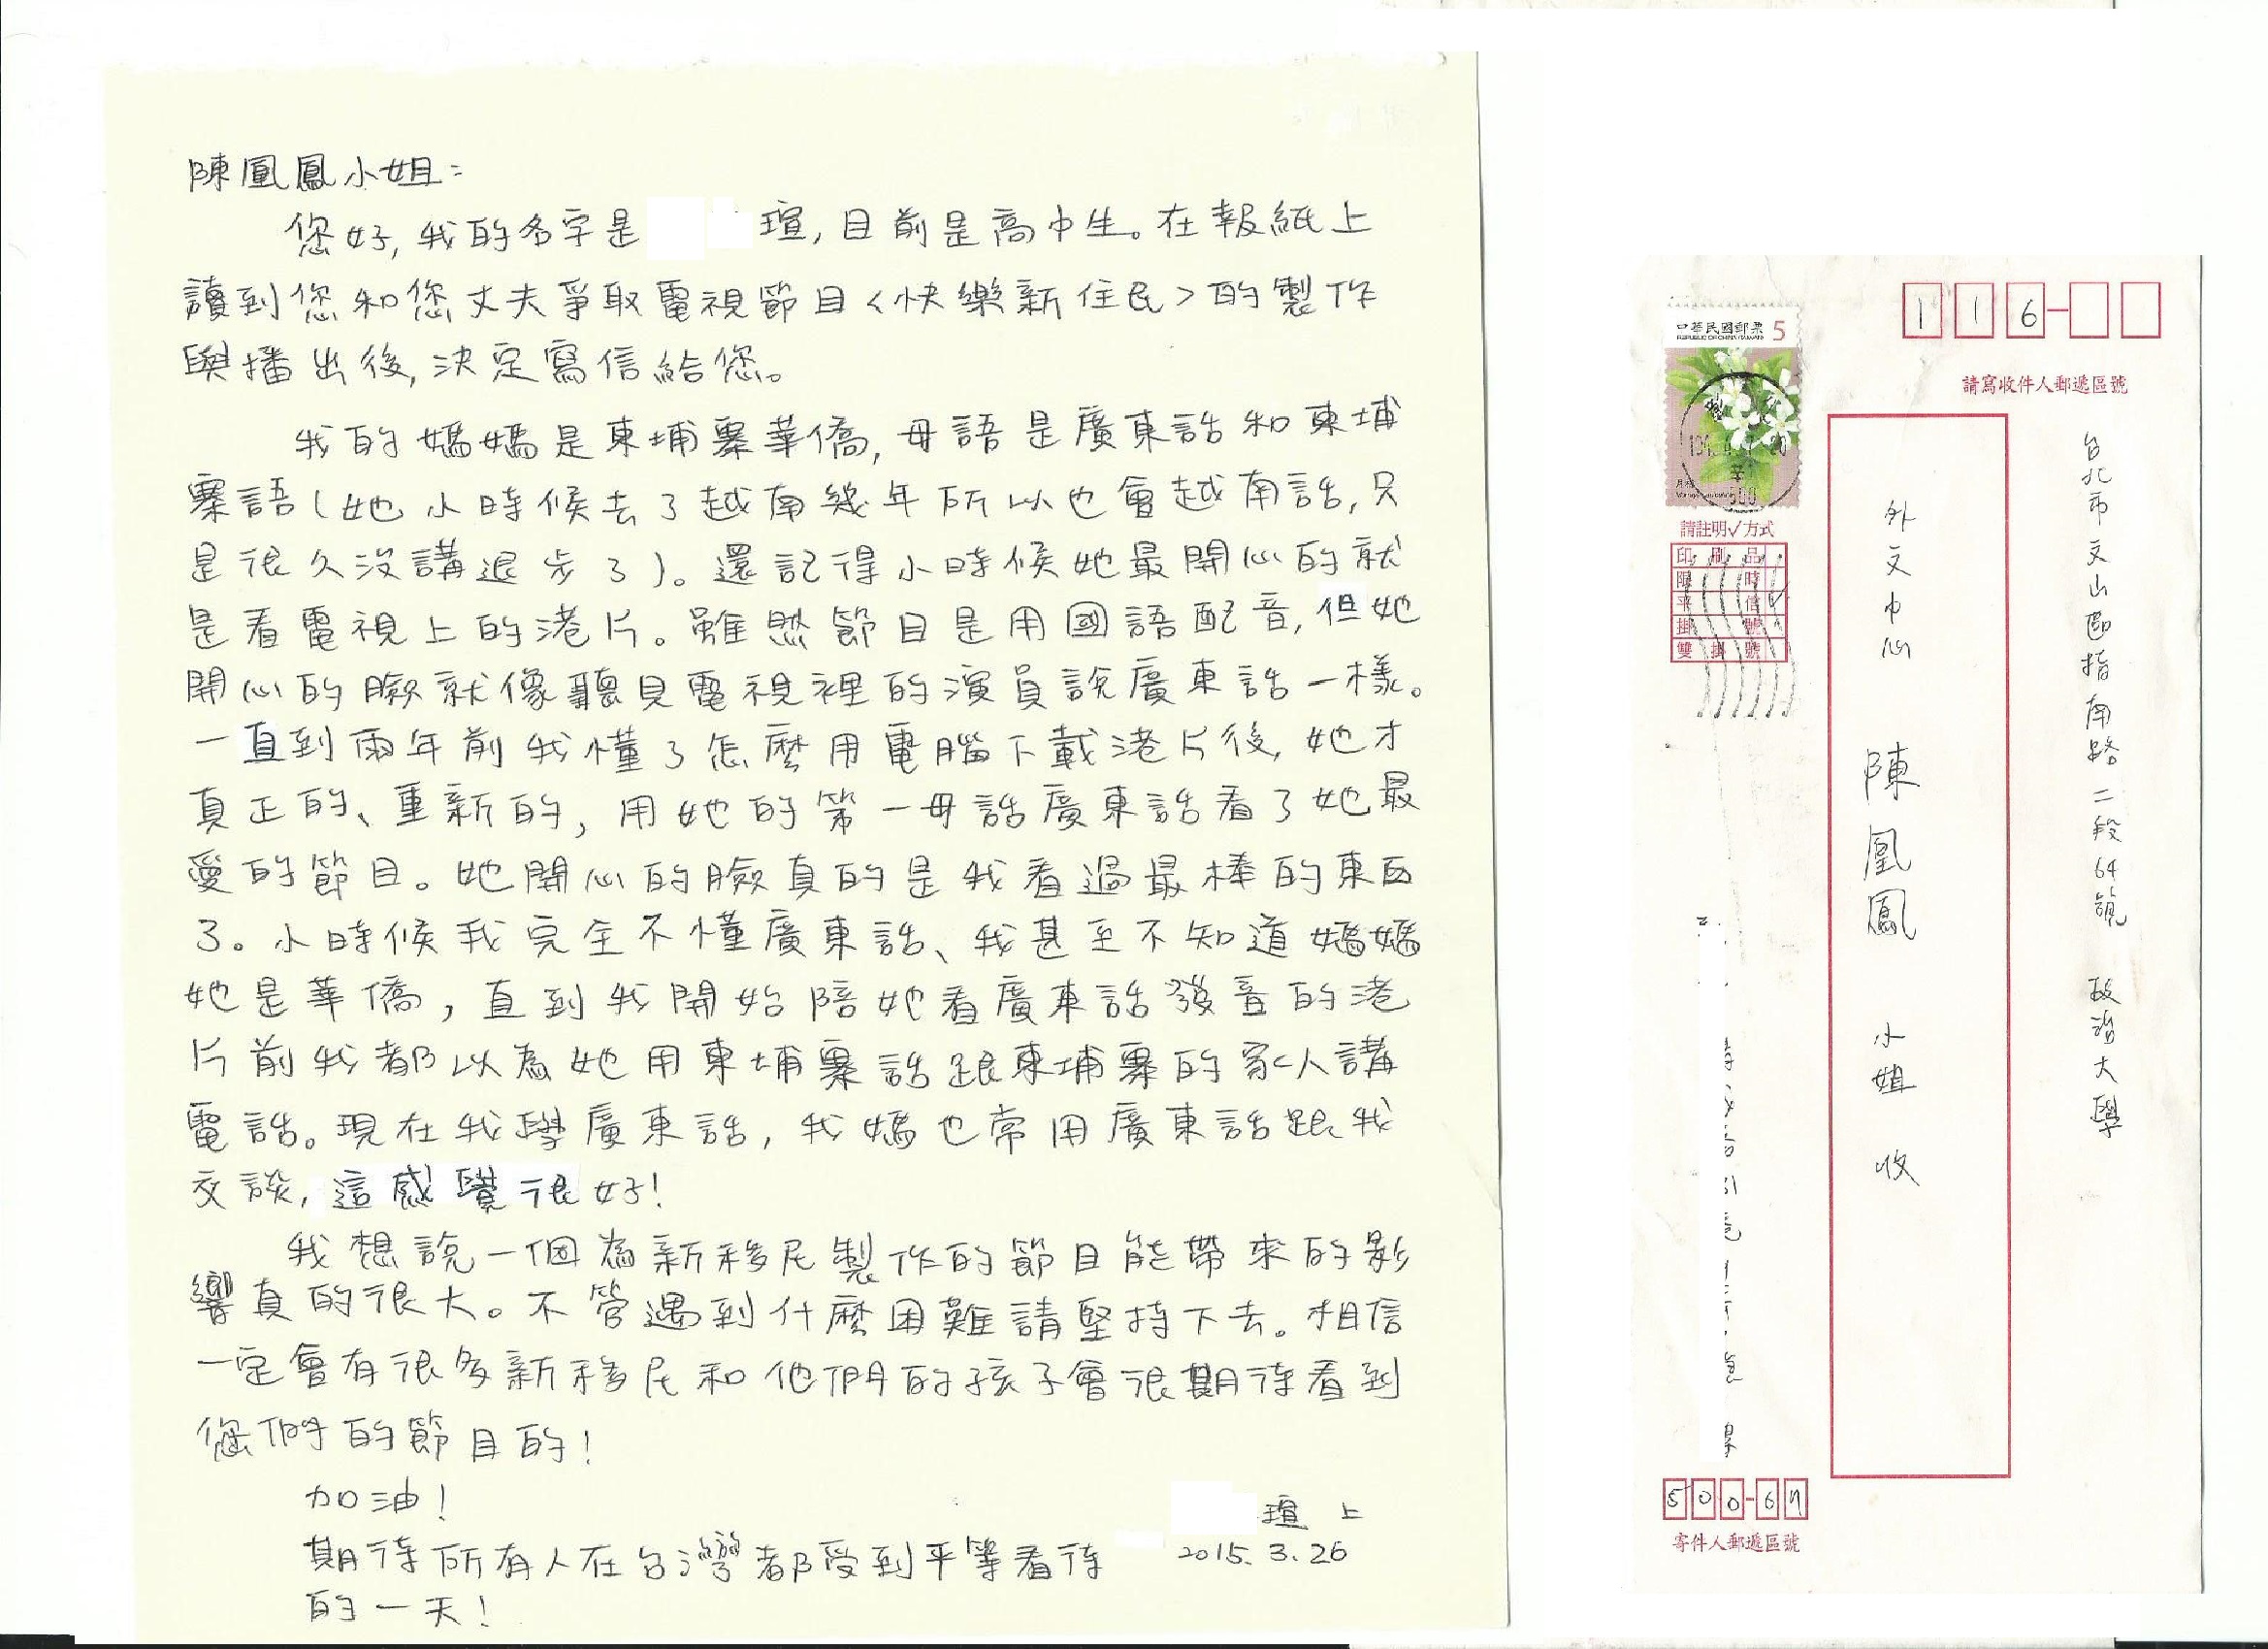 陳凰鳳小姐:
您好,我的名字是 瑄,目前是高中生。在報紙上
讀到您和您丈夫爭取電視節目<快樂新住民>的製作
與播出後,決定寫信給您。
我的媽媽是柬埔寨華僑,母語是廣東話和柬埔
寨語(她小時候去了越南幾年所以也會越南話,只
是很久沒講退步了)。還記得小時候她最開心的就
是看電視上的港片。雖然節目是用國語配音,但她
開心的臉就像聽見電視裡的演員說廣東話一樣。
一直到兩年前我懂了怎麼用電腦下載港片後,她才
真正的、重新的,用她的第一母語廣東話看了她最
愛的節目。她開心的臉真的是我看過最棒的東西
了。小時候我完全不懂廣東話、我甚至不知道媽媽
她是華僑,直到我開始陪她看廣東話發音的港
片前我都以為她用柬埔寨話跟柬埔寨的家人講
電話。現在我學廣東話,我媽也常用廣東話跟我
交談,這感覺很好!
我想說一個為新移民製作的節目能帶來的影
響真的很大。不管遇到什麼困難請堅持下去。相信
一定會有很多新移民和他們的孩子會很期待看到
您們的節目的!
加油!
期待所有人在台灣都受到平等看待
的一天!
瑄 上
2015.3.26
116-
請寫收件人郵遞區號
台北市文山區指南路二段64號 政治大學
外文中心 陳凰鳳 小姐 收
中華民國郵票 5
REPUBLIC OF CHINA (TAIWAN)
請註明✓方式
印刷品
限時
平信
掛號
雙掛號
500-67
寄件人郵遞區號